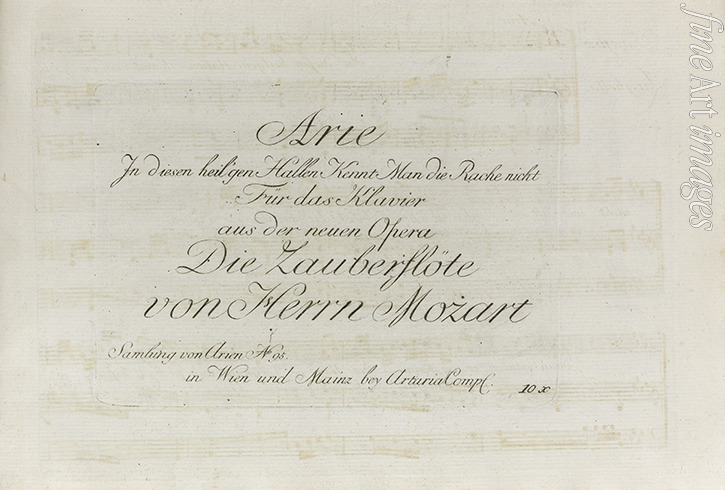 Arie
In diesen heil'gen Hallen Kennt Man die Rache nicht
Für das Klavier
aus der neuen Opera
Die Zauberflöte
von Herrn Mozart
Samlung von Arien No 95.
in Wien und Mainz bey Artaria Comp.
10 x
fine Art images